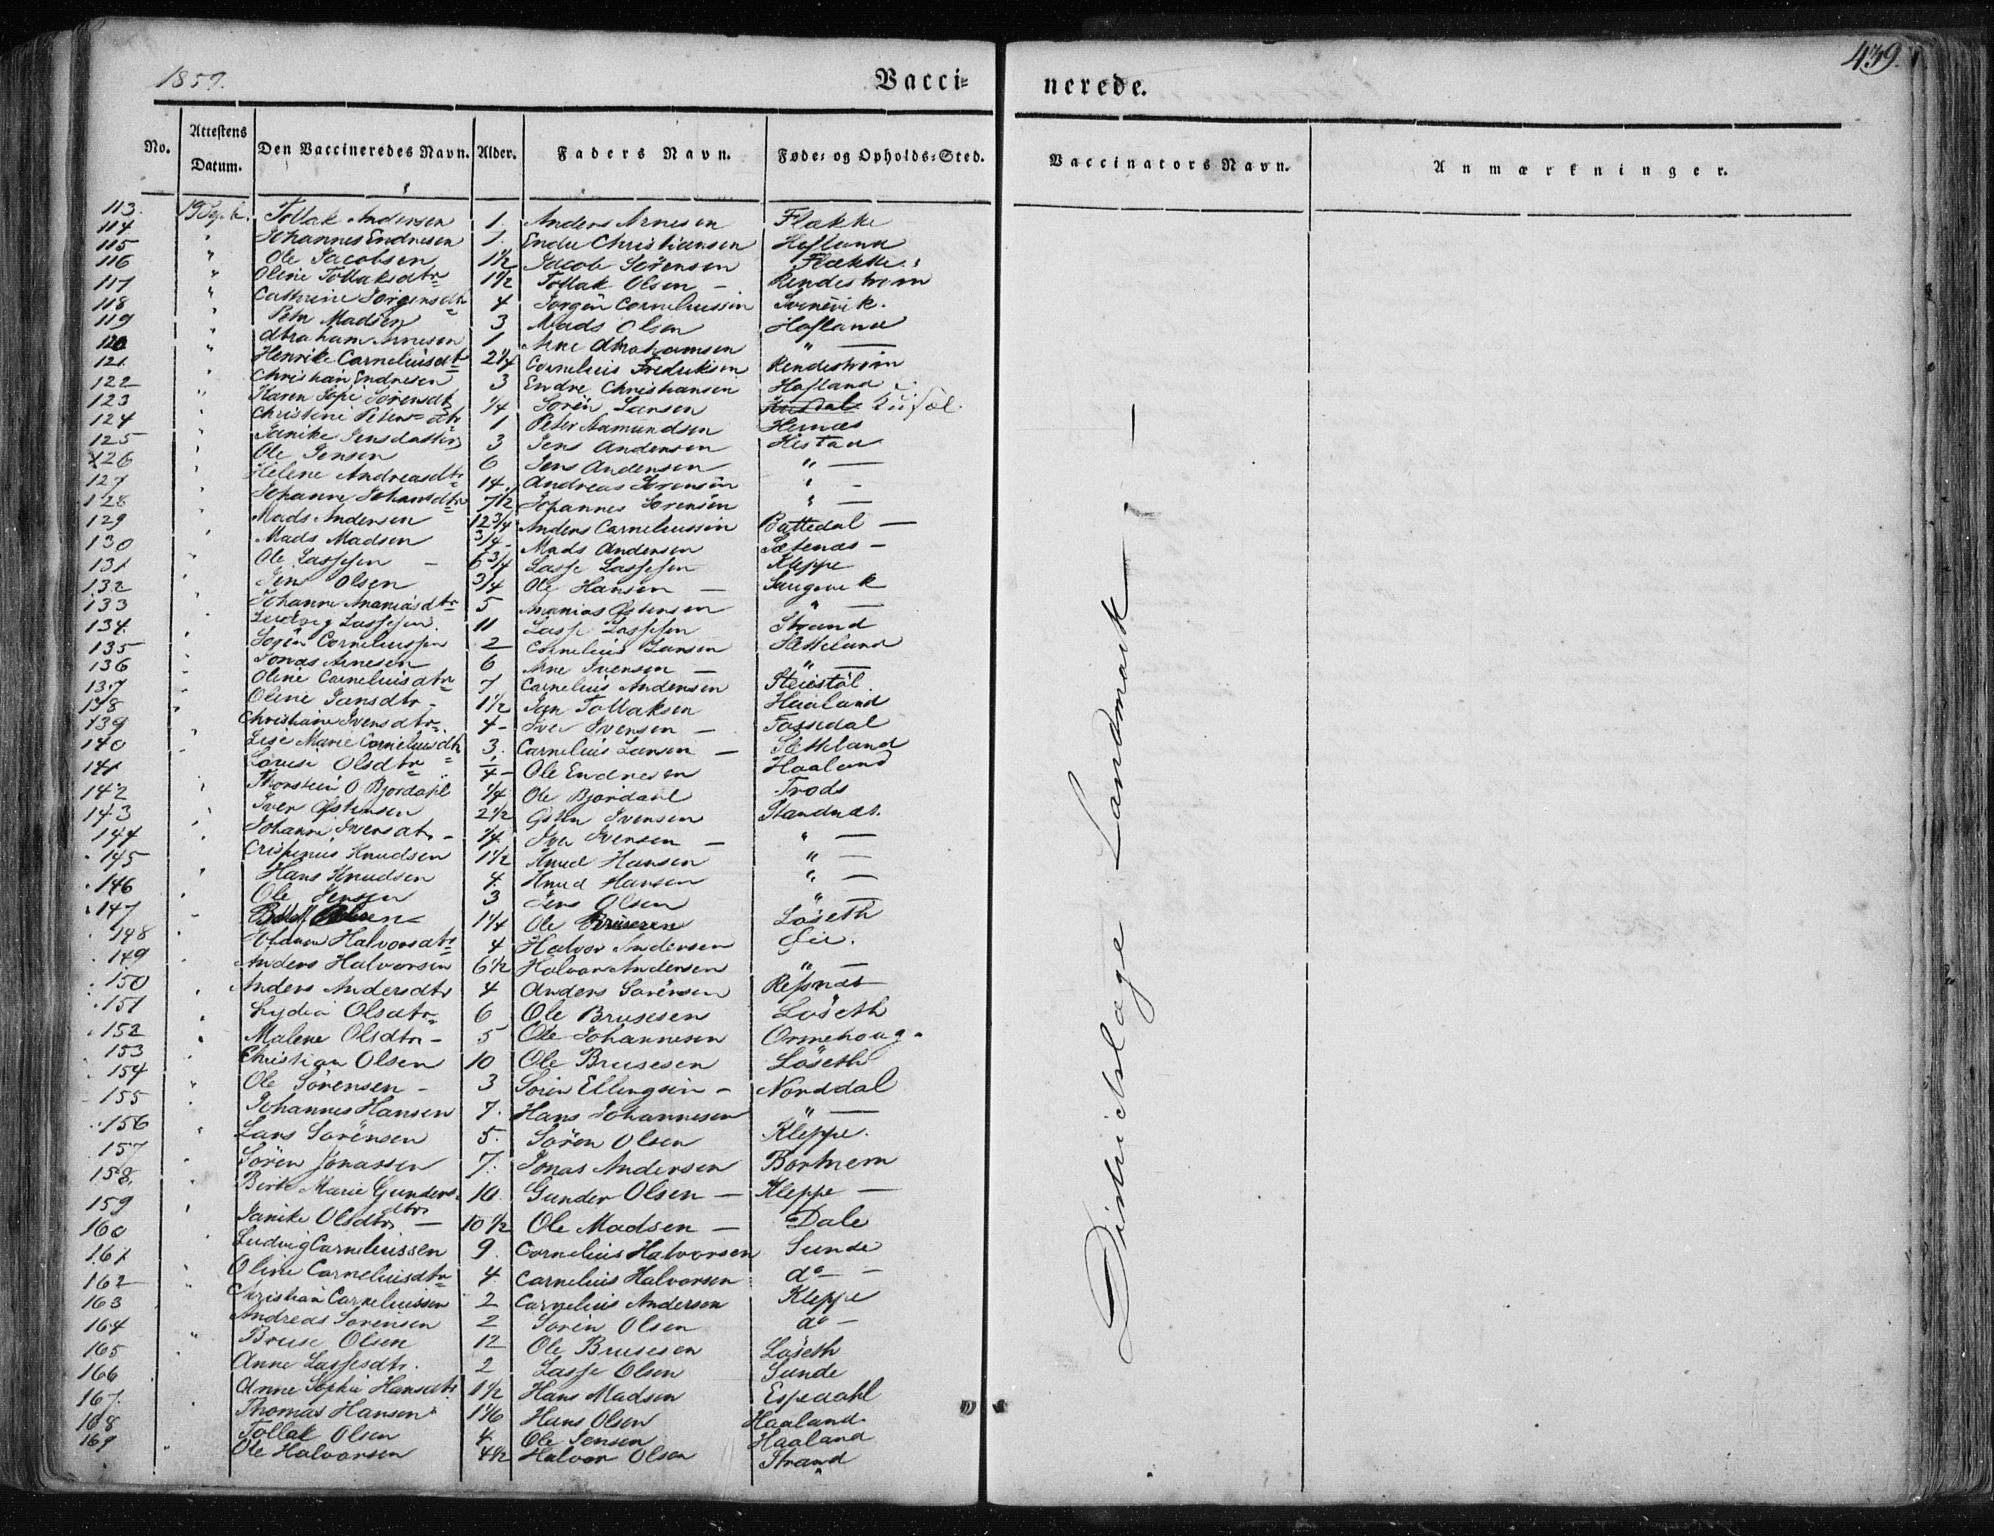 1857.
Vacci= nerede.
439.
No. Attestens Datum. Den Vaccineredes Navn. Alder. Faders Navn. Føde= og Opholds=Sted. Vaccinators Navn. Anmærkninger.
113. 19 Sept. Tollak Andersen 1. Anders Arnesen Flække
114 " Johannes Endresen 1. Endre Christiansen Hofland
115 " Ole Jacobsen 1 1/2 Jacob Sørensen Flække
116 " Oline Tollaksdtr 1 1/2 Tollak Olsen — Rendestrøm
117 " Cathrine Jørgensdtr 4 Jørgen Corneliussen Svinevik.
118 " Peter Madsen 3 Mads Olsen Hofland
119 " Abraham Arnesen 1 Arne Abrahamsen " —
120 " Henrike Corneliusdtr 2 1/4 Cornelius Fredriksen Rendestrøm
121. " Christian Endresen 3 Endre Christiansen Hofland
122 " Karen Sofie Sørensdtr 1/4 Søren Larsen
123 " Christine Petersdtr 1 Peter Aamundsen Hernæs
124 " Janike Jensdatter 3 Jens Andersen Hestad
125 " Ole Jensen 6 Jens Andersen " —
126 " Helene Andreasdtr 14. Andreas Sørensen " -
127 " Johanne Johansdtr 7 1/2 Johannes Sørensen " —
128 " Mads Andersen 12 3/4 Anders Corneliussen Battedal —
129 " Mads Madsen 3/4 - Mads Andersen Sætenæs —
130 " Ole Lassesen — 6 3/4 Lasse Lassesen Kleppe
131 " Jens Olsen 3/4 Ole Hansen — Saugevik
132 " Johanne Ananiasdtr 5 Ananias Østensen " —
133 " Ludvig Lassesen. 11 Lasse Lassesen Strand
134. " Søren Corneliussen 2 Cornelius Larsen Sletteland
135 " Jonas Arnesen 6 Arne Ivensen — " —
136 " Oline Corneliusdtr 7 Cornelius Andersen Steiestøl
137 " Oline Jansdtr - 1 1/2 Jan Tollaksen Haaland
138 " Christiane Iversdtr. 4 - Iver Iversen — Fossedal
139 " Lise Marie Corneliusdtr 3. Cornelius Larsen — Sletteland
140 " Louise Olsdtr 1/4 - Ole Endresen Haaland
141 " Thorstein O Bjordahl 1/4 Ole Bjordahl Trods
142 " Iver Østensen 2 1/2 Østen Iversen Standnæs.
143 " Johanne Iversdtr - 1/4. Iver Iversen — " —
144 " Crispinus Knudsen 1 1/2 Knud Hansen " —
145 " Hans Knudsen 4. Knud Hansen " —
146 " Ole Jensen 3 Jens Olsen " —
147 - 1 1/4 Ole Brusesen Løseth
148 " Johanne Halvorsdtr 4 Halvor Andersen Øie.
149 " Anders Halvorsen 6 1/2 Halvor Andersen " —
150 " Anders Andersdtr 4 Anders Sørensen Resnæs
151 " Lydia Olsdtr - 6 Ole Brusesen Løseth
152 " Malene Olsdtr - 5 Ole Johannesen Ormehoug -
153 " Christian Olsen 10 Ole Brusesen Løseth
154 " Ole Sørensen - 3 Søren Ellingsen - Norddal
155 " Johannes Hansen 7. Hans Johannesen " —
156 " Lars Sørensen 5. Søren Olsen Kleppe.
157 Søren Jonassen 7. Jonas Andersen Bortnem
158. Berte Marie Gundersdtr 10. Gunder Olsen — Kleppe —
159 " Janike Olsdtr — 10 1/2 Ole Madsen — Dale
160 " Ludvig Corneliussen 9. Cornelius Halvorsen Sunde
161 " Oline Corneliusdtr 4. Cornelius Halvorsen do —
162 " Christian Corneliussen 2 Cornelius Andersen Kleppe
163 Andreas Sørensen 2 Søren Olsen do —
164 " Bruse Olsen 12 Ole Brusesen Løseth
165 " Anne Lassesdtr. 2 Lasse Olsen Sunde
166 " Anne Sophie Hansdtr 1 1/2 Hans Madsen Espedahl
167. " Thomas Hansen 1 1/6 Hans Olsen Haaland
168 Tollak Olsen 4. Ole Jensen Haaland
169 " Ole Halvorsen 4 1/2 Halvor Olsen Strand
Districtslæge Landmark —